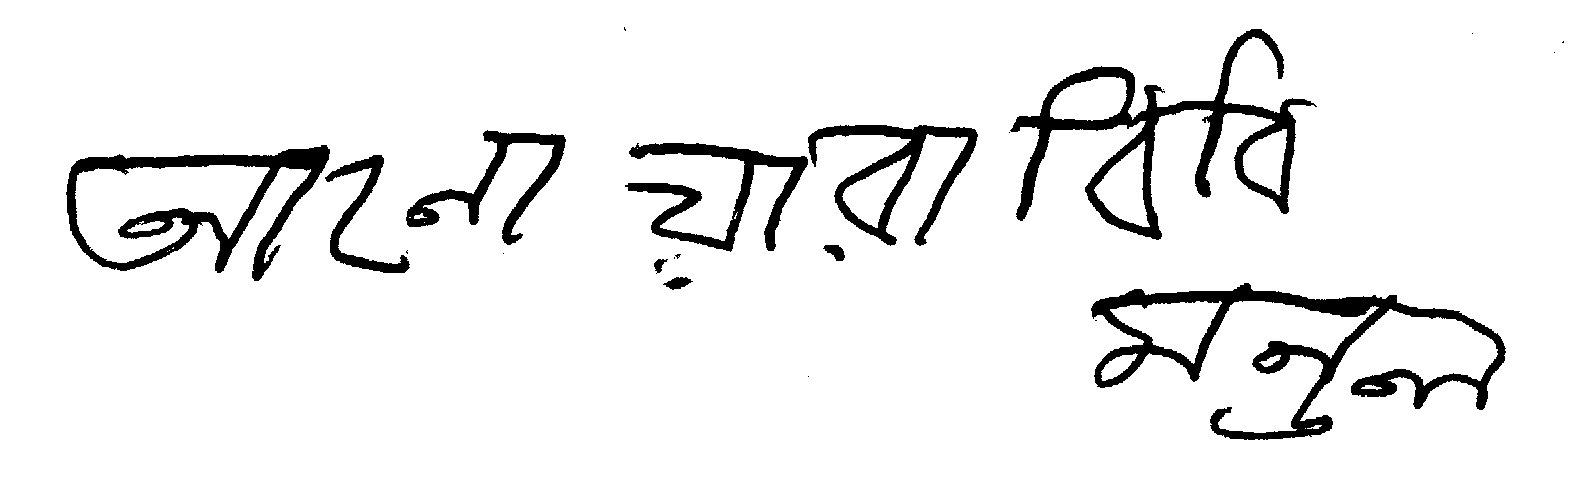 আনোয়ারা বিবি
মন্ডল